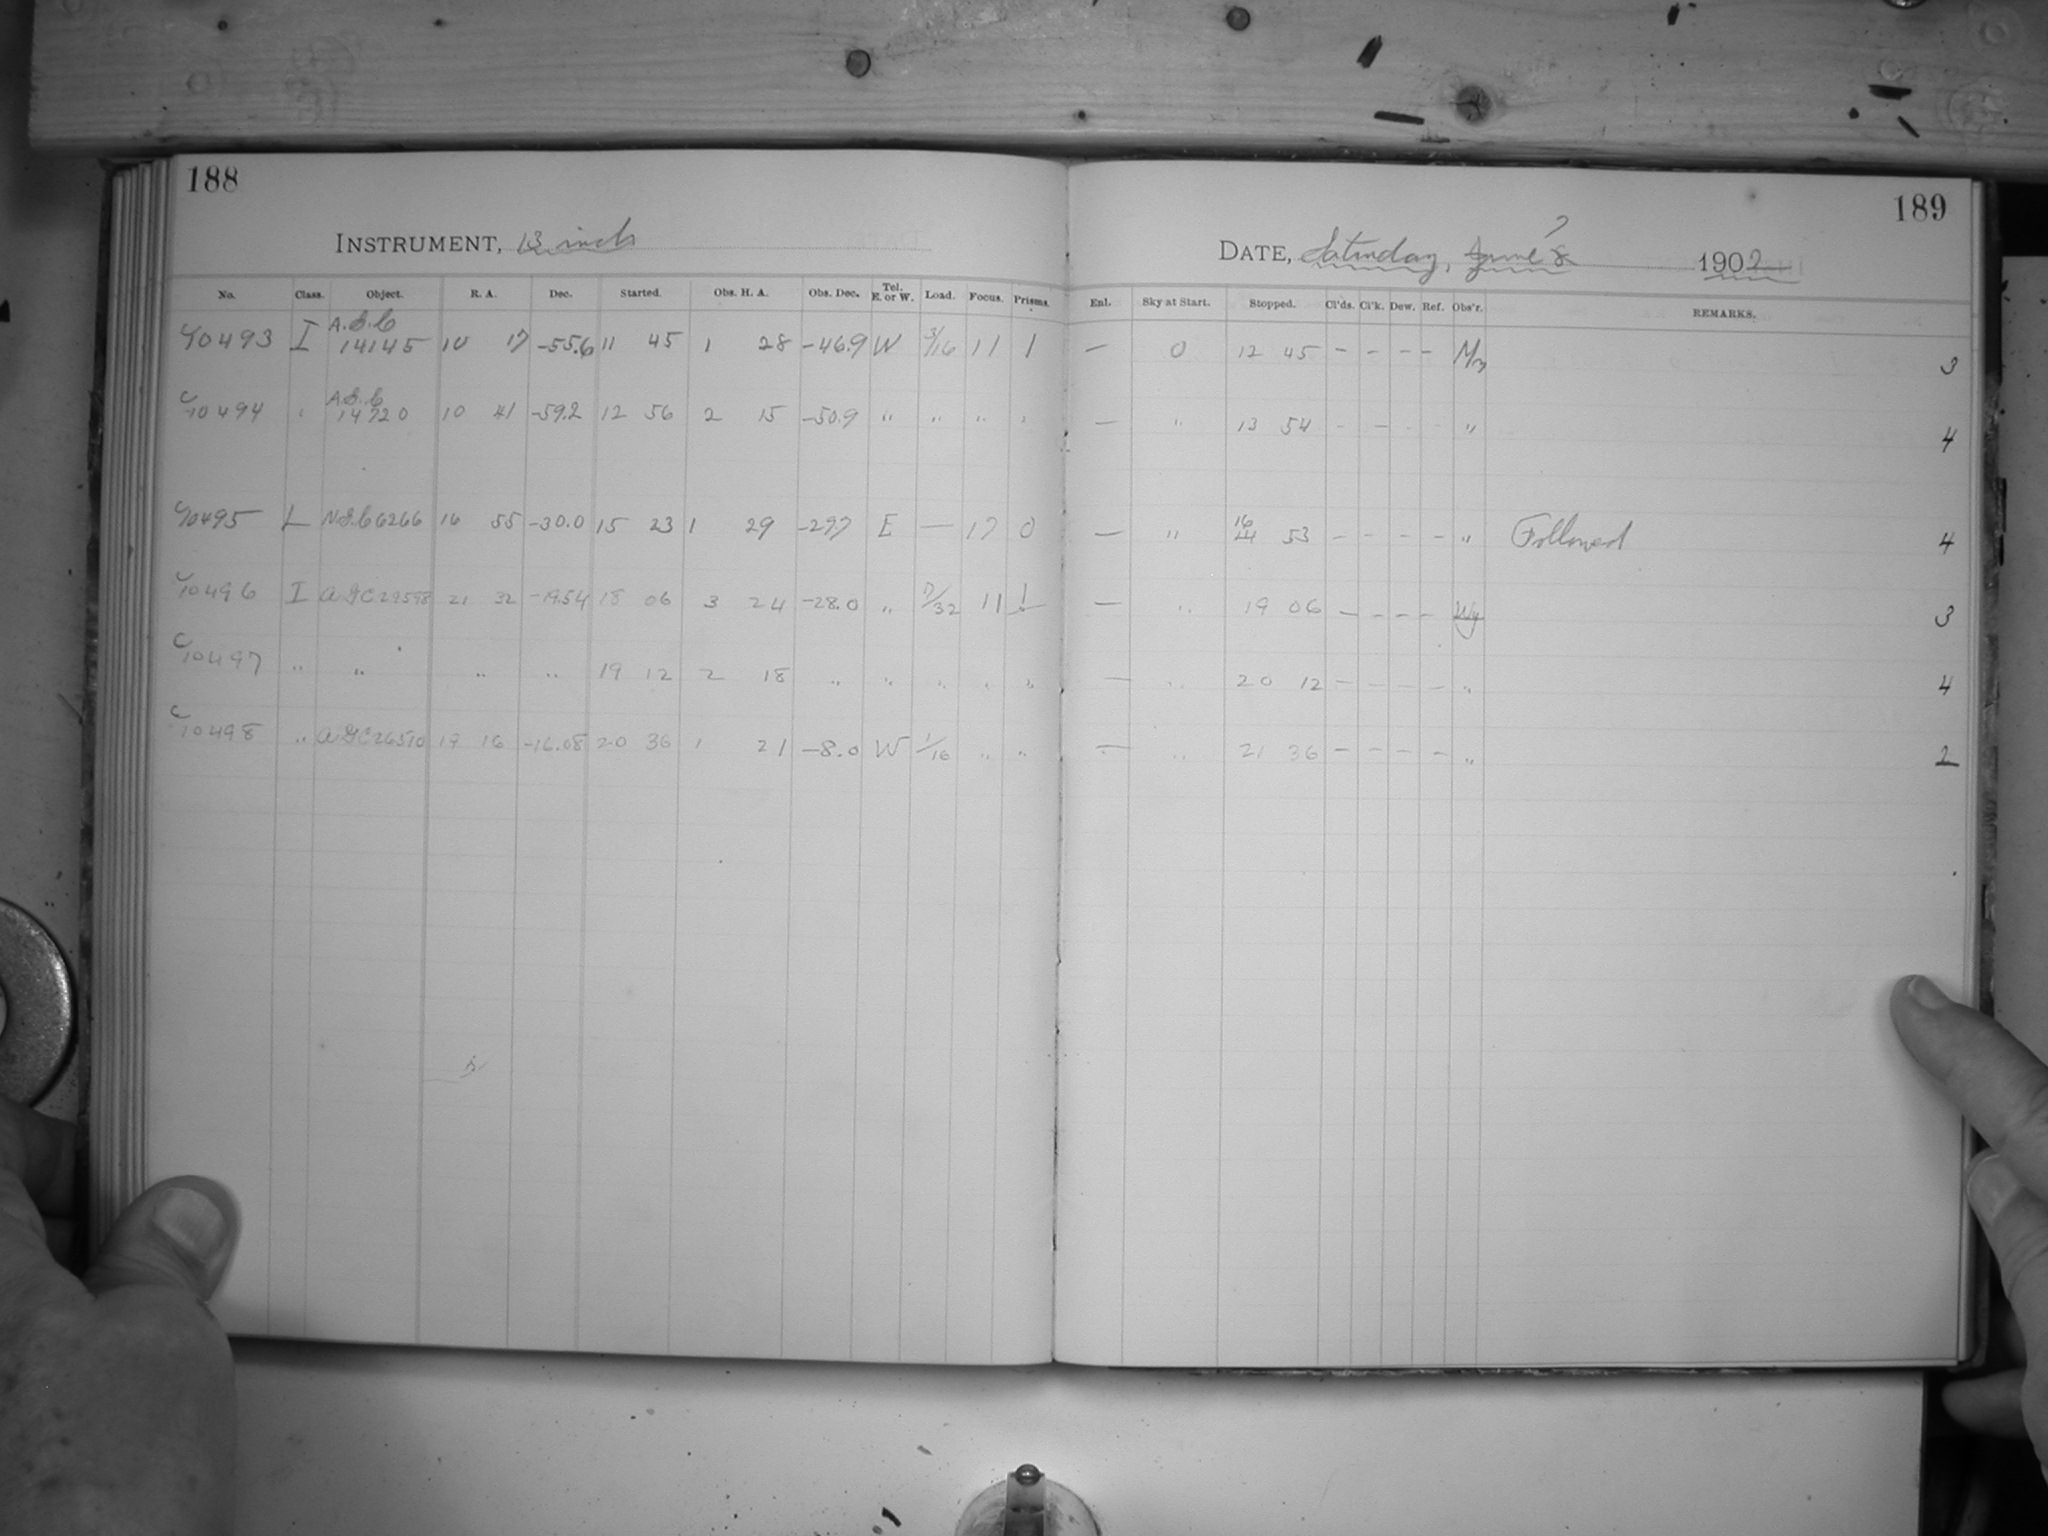 188
INSTRUMENT, 13 inch
No. Class. Object. R. A. Dec. Started. Obs. H. A. Obs. Dec. Tel. E. or W. Load. Focus. Prisms.
C10493 I A.G.C 14145 10 17 -55.6 11 45 1 28 -46.9 W 3/16 11 1
C10494 " A.G.C 14720 10 41 -59.2 12 56 2 15 -50.9 " " " "
C10495 L N.G.C 6266 16 55 -30.0 15 23 1 29 -29.7 E — 17 0
C10496 I A G C 29598 21 32 -19.54 18 06 3 24 -28.0 " 7/32 11 1
C10497 " " " " 19 12 2 18 " " " " "
C10498 " A G C 26510 19 16 -16.08 20 36 1 21 -8.0 W 1/16 " "
189
DATE, Saturday, June 1902
Enl. Sky at Start. Stopped. Cl'ds. Cl'k. Dew. Ref. Obs'r. REMARKS.
— 0 12 45 - - - - 3
— " 13 54 - - - - " 4
— " 16 53 - - - - " Followed 4
— " 19 06 - - - - Wy 3
— " 20 12 - - - - " 4
— " 21 36 - - - - " 2